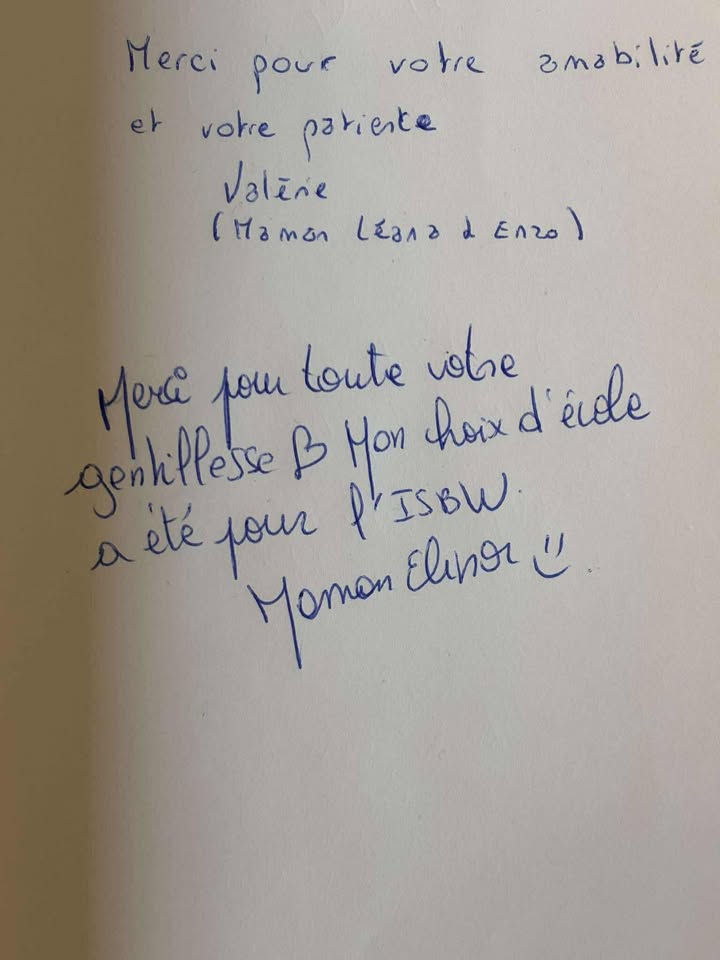 Merci pour votre amabilité
et votre patience
Valérie
(Maman Léana & Enzo)
Merci pour toute votre
gentillesse Mon choix d'école
a été pour l'ISBW.
Maman Elinor